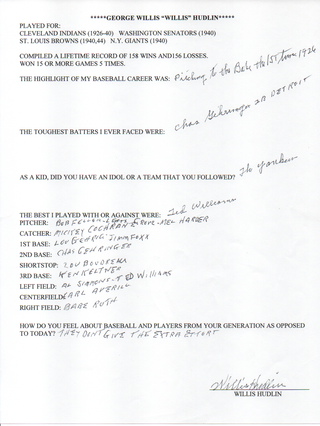 *****GEORGE WILLIS "WILLIS" HUDLIN*****
PLAYED FOR:
CLEVELAND INDIANS (1926-40) WASHINGTON SENATORS (1940)
ST. LOUIS BROWNS (1940,44) N.Y. GIANTS (1940)
COMPILED A LIFETIME RECORD OF 158 WINS AND156 LOSSES.
WON 15 OR MORE GAMES 5 TIMES.
THE HIGHLIGHT OF MY BASEBALL CAREER WAS: Pitching to the Babe the 1ST time 1926
THE TOUGHEST BATTERS I EVER FACED WERE: Chas Gehringer 2B DETROIT
AS A KID, DID YOU HAVE AN IDOL OR A TEAM THAT YOU FOLLOWED? The Yankees
THE BEST I PLAYED WITH OR AGAINST WERE: Ted Williams
PITCHER: BOB FELLER - LEFTY GROVE - MEL HARDER
CATCHER: MICKEY COCHRANE
1ST BASE: LOU GEHRIG Jimmy FOXX
2ND BASE: CHAS GEHRINGER
SHORTSTOP: LOU BOUDREAU
3RD BASE: KEN KELTNER
LEFT FIELD: AL SIMMONS - TED Williams
CENTERFIELD: EARL AVERILL
RIGHT FIELD: BABE RUTH
HOW DO YOU FEEL ABOUT BASEBALL AND PLAYERS FROM YOUR GENERATION AS OPPOSED
TO TODAY? THEY DONT GIVE THE EXTRA EFFORT
Willis Hudlin
WILLIS HUDLIN